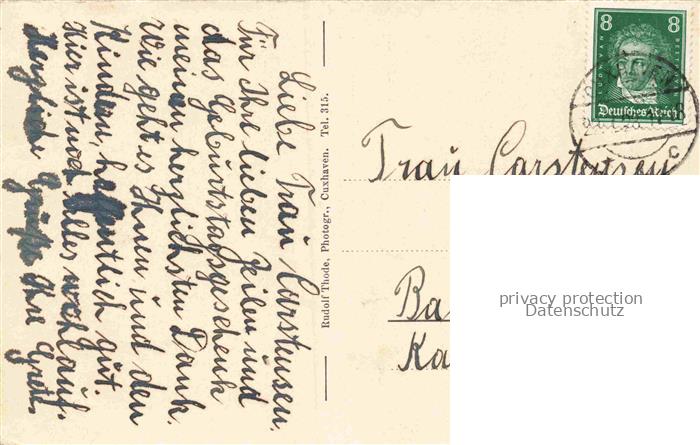 Liebe Frau Carstensen.
Für Ihre lieben Zeilen und
das Geburtstagsgeschenk
meinen herzlichsten Dank.
Wie geht es Ihnen und den
Kindern, hoffentlich gut.
Hier ist noch Alles wohlauf.
Herzliche Grüße Ihre
Rudolf Thode, Photogr., Cuxhaven. Tel. 315.
8 8
LUDW VAN BEETH
Deutsches Reich
C
Frau Carstensen
Ba
Ka
privacy protection
Datenschutz